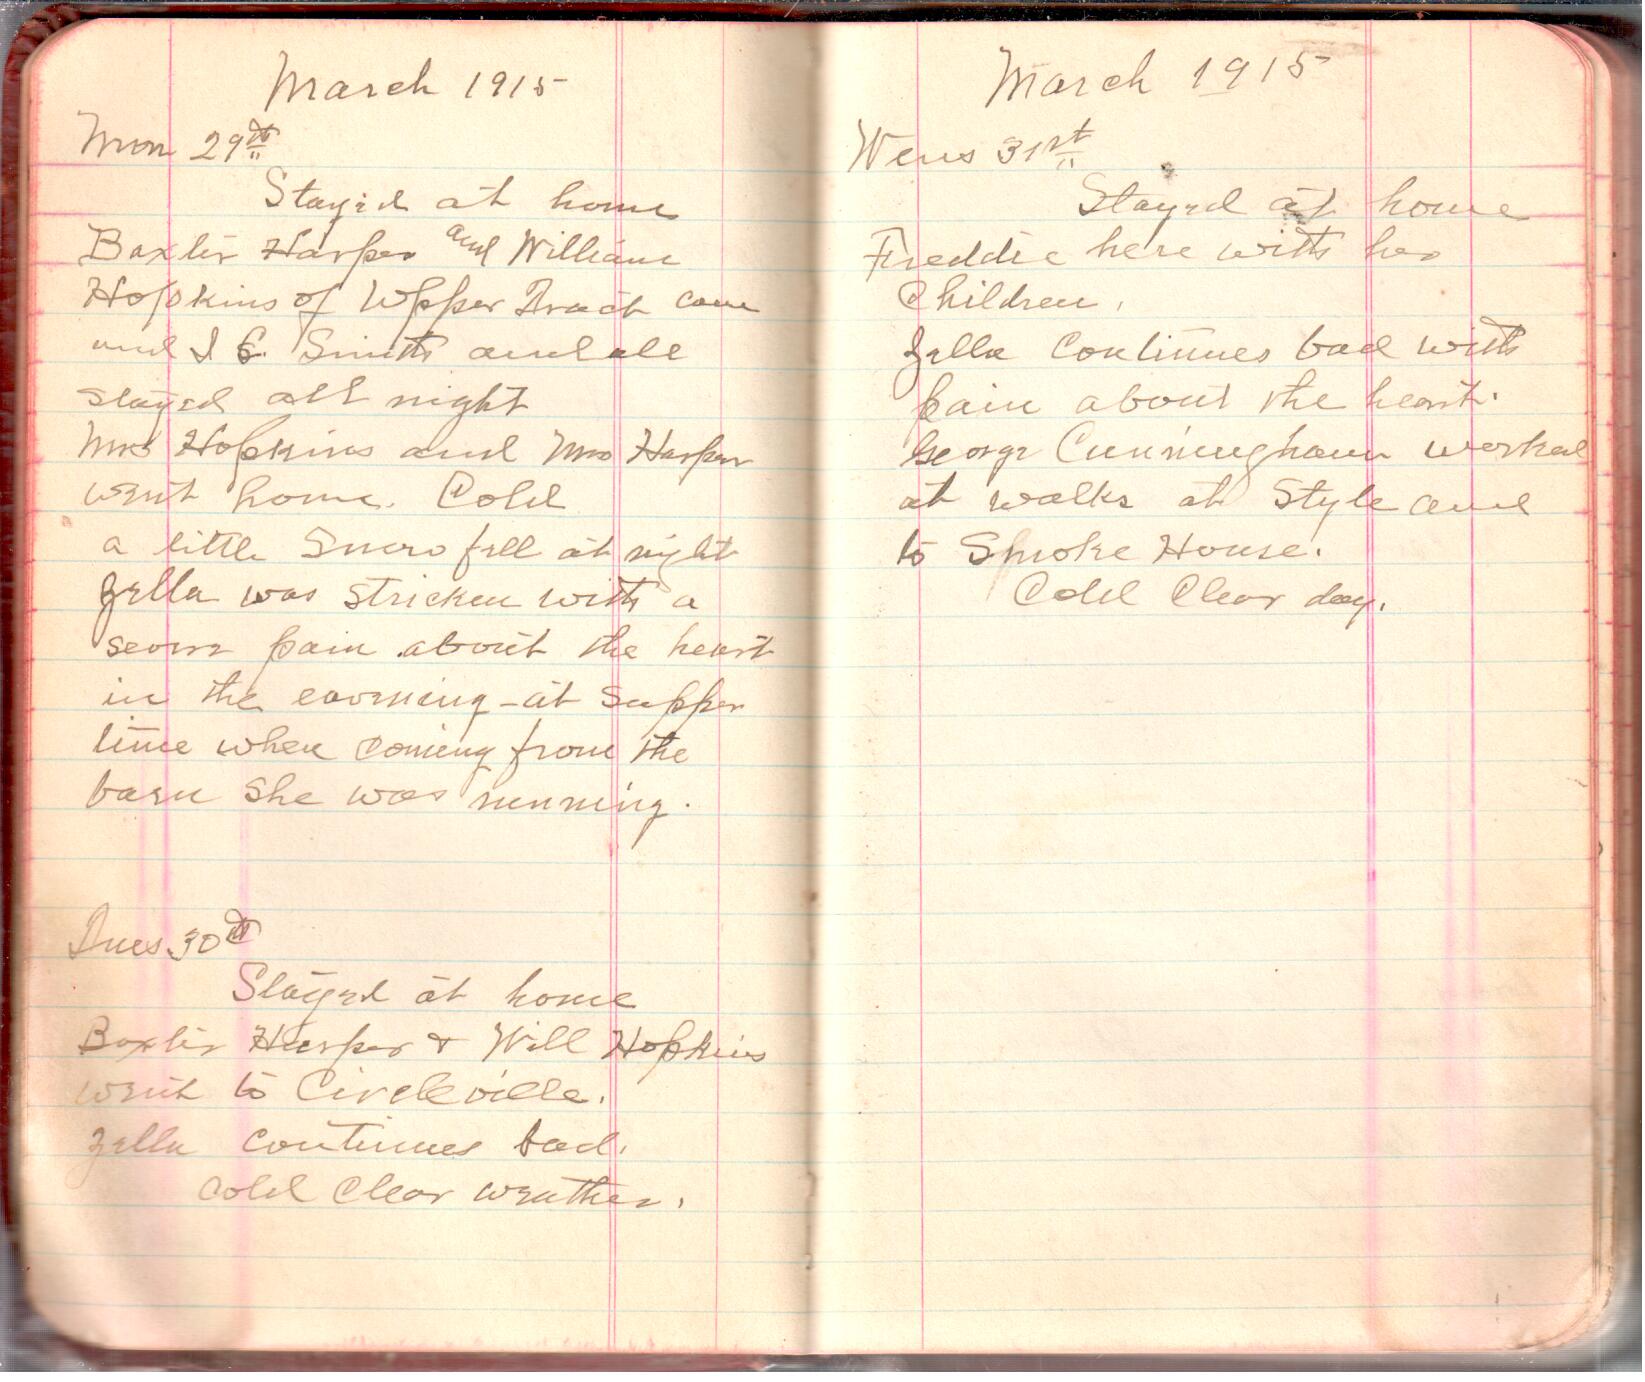 March 1915
Mon 29th
Stayed at home
Baxter Harper and William
Hopkins of Upper Tract came
and I C. Smith and all
stayed all night
Mrs Hopkins and Mrs Harper
went home. Cold
a little Snow fell at night
Zella was stricken with a
severe pain about the heart
in the evening - at supper
time when coming from the
barn she was running.
Tues. 30th
Stayed at home
Baxter Harper & Will Hopkins
went to Circleville.
Zella continues bad.
Cold Clear weather.
March 1915
Wens 31st
Stayed at home
Freddie here with her
Children.
Zella Continues bad with
pain about the heart.
George Cunningham worked
at walks at Style and
to Smoke House.
Cold Clear day.